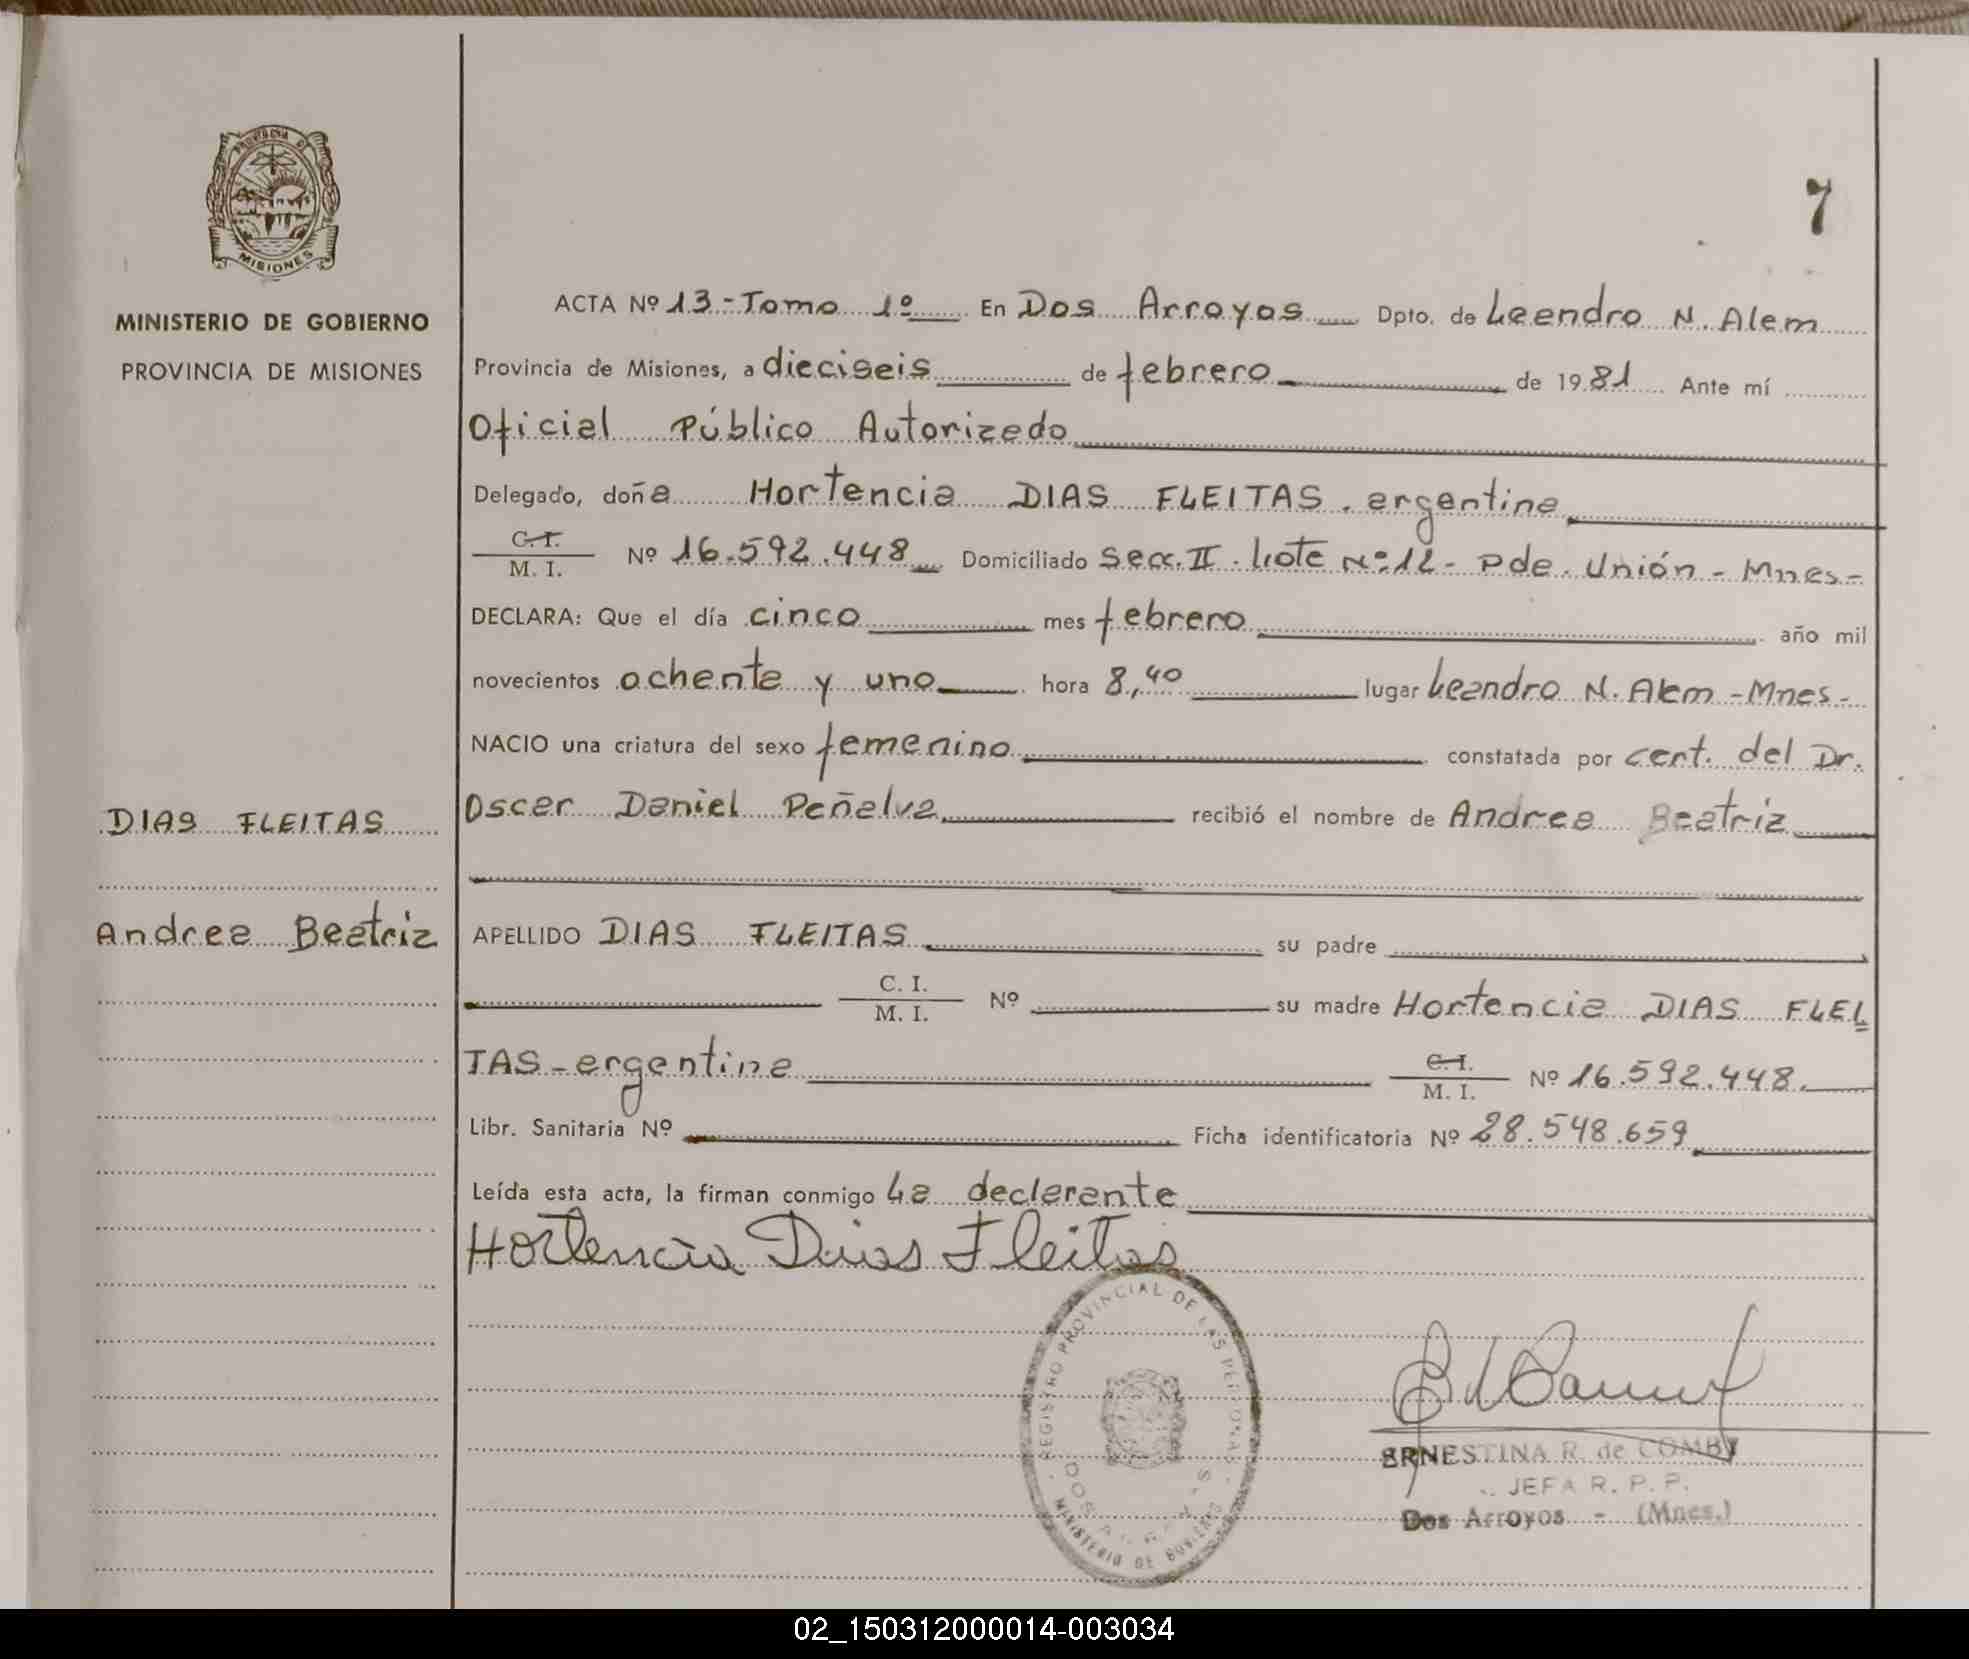 PROVINCIA DE
MISIONES
MINISTERIO DE GOBIERNO
PROVINCIA DE MISIONES
DIAS FLEITAS
Andrea Beatriz
7
ACTA Nº 13 - Tomo 1º En Dos Arroyos Dpto. de Leandro N. Alem
Provincia de Misiones, a dieciseis de febrero de 1981 Ante mí
Oficial Público Autorizado
Delegado, doña Hortencia DIAS FLEITAS. argentina
C. I.
M. I. Nº 16.592.448 Domiciliado Secc. II. Lote Nº 12 - Pde. Unión - Mnes-
DECLARA: Que el día cinco mes febrero año mil
novecientos ochenta y uno hora 8,40 lugar Leandro N. Alem - Mnes-
NACIO una criatura del sexo femenino constatada por cert. del Dr.
Oscar Daniel Peñalva recibió el nombre de Andrea Beatriz
APELLIDO DIAS FLEITAS su padre
C. I.
M. I. Nº su madre Hortencia DIAS FLEI
TAS - argentina C. I.
M. I. Nº 16.592.448.
Libr. Sanitaria Nº Ficha identificatoria Nº 28.548.659
Leída esta acta, la firman conmigo La declarante
Hortencia Dias Fleitas
REGISTRO PROVINCIAL DE LAS PERSONAS
DOS ARROYOS
MINISTERIO DE GOBIERNO
ERNESTINA R. de COMBY
JEFA R. P. P.
Dos Arroyos - (Mnes.)
02_150312000014-003034